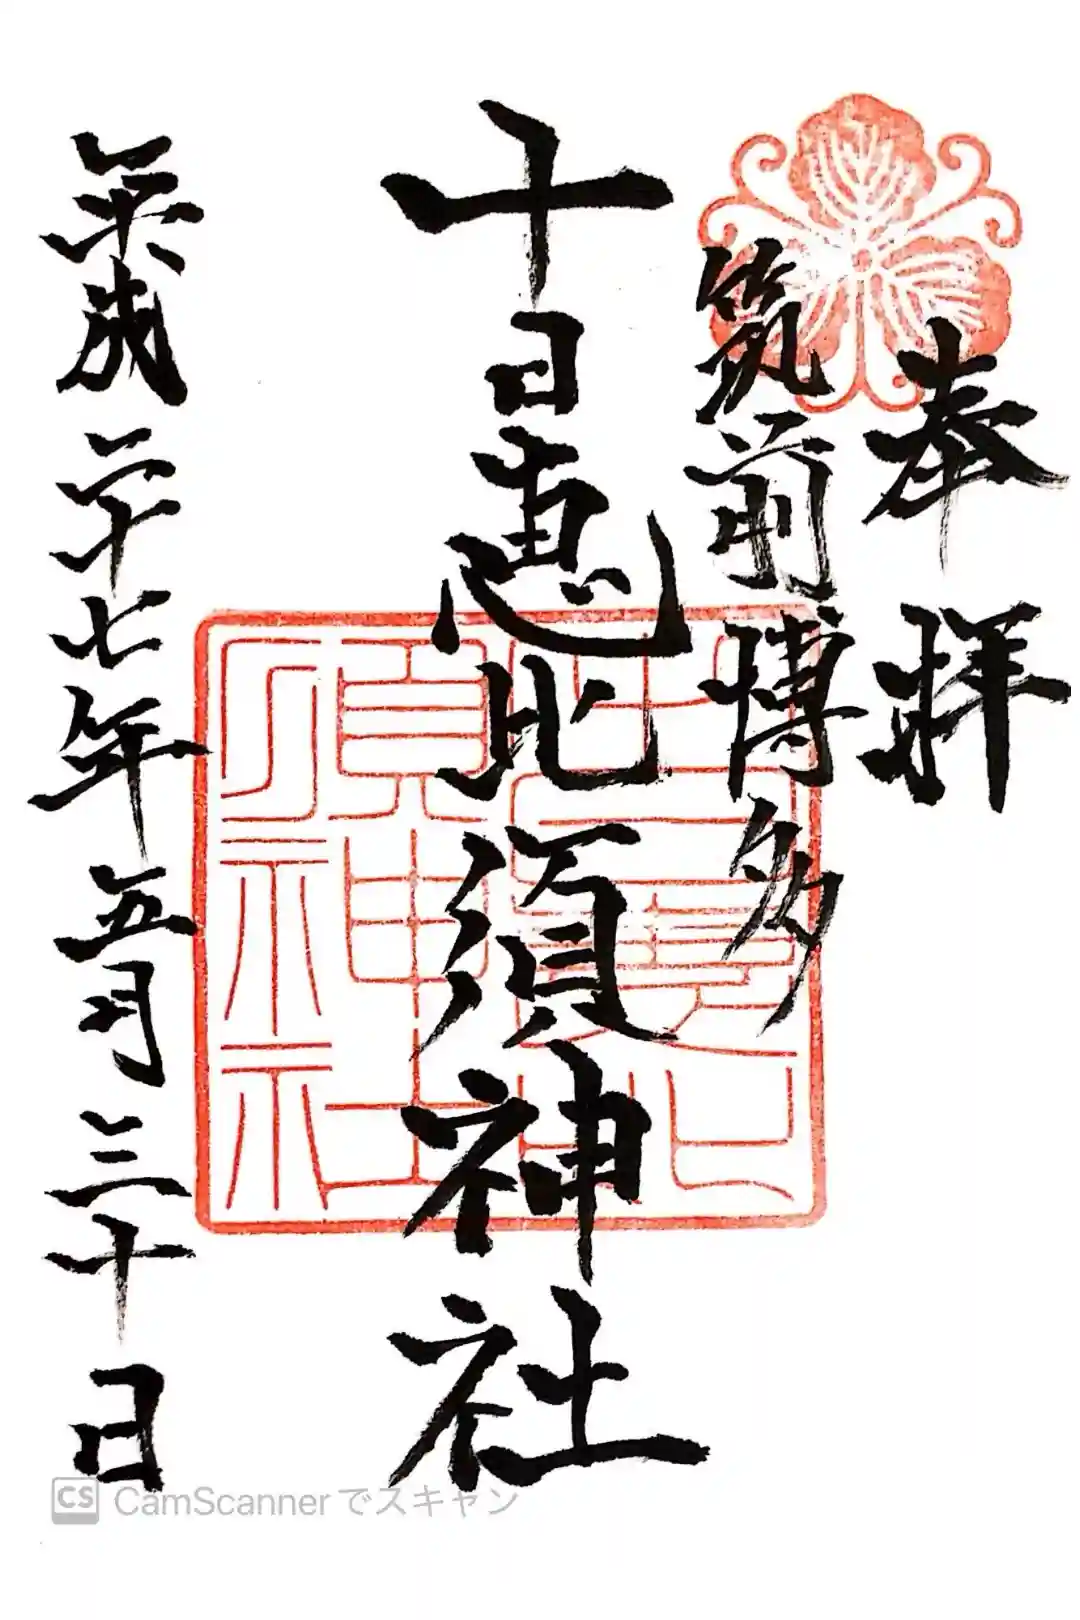 奉拝
筑前博多
十日恵比須神社
平成二十七年五月三十日
CS CamScannerでスキャン